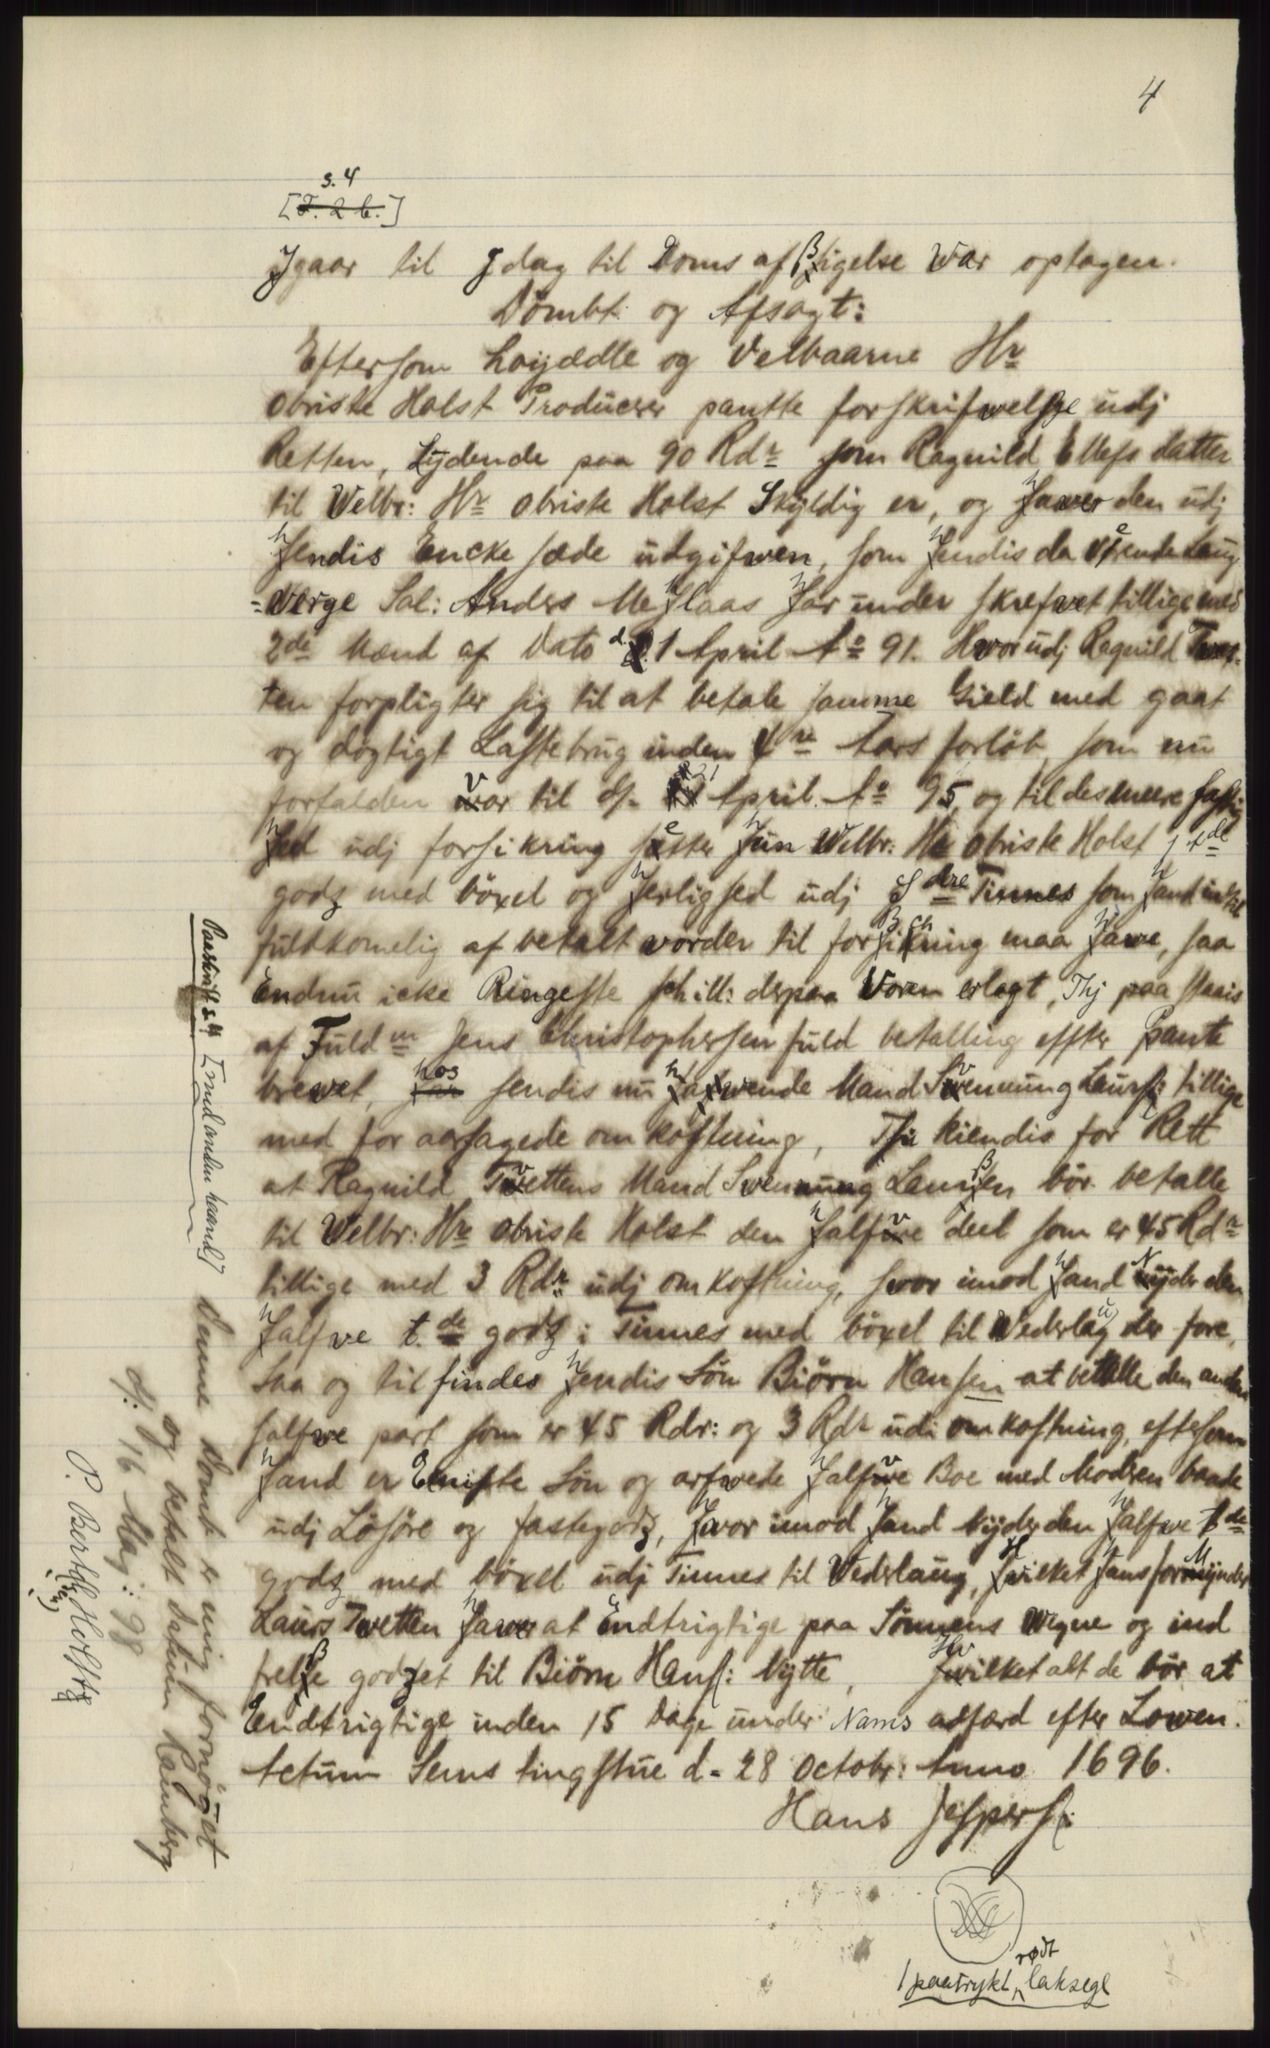 4
s. 4
[F. 2 b.]
Jgaar til Jdag til Doms afßigelse War optagen.
Dömbt og Afsagt:
Eftersom høyædle og Velbaarne Hr
Obriste Holst Producerer pantte forskrifwelße udj
Retten, Lydende paa 90 Rdr som Ragnild Ellefs datter
til Welbr: Hr Obriste Holst Skyldig er, og hawer den udj
hendis Encke sæde udgifwen, som hendis da værende Laug
=Verge Sal: Anders Mehlaas har under skrefvet tillige med
2de Mænd af Dato d. 1 April Ao 91. Hvorudj Ragnild Twet-
ten forpligter sig til at betale samme Gield med gaat
og dögtigt Lastebrug inden 4re Aars forløb, som nu
forfalden var til d. 21 April Ao 95, og til des meere fastig
hed udj forsikring setter hun Welbr: Hr Obriste Holst 1 td
godz med böxel og herlighed udj Sdre Tinnes som hand indtil
fuldkomelig af betalt vorder til forßichning maa hawe, saa
Endnu icke Ringeste schill: derpaa Voren erlagt, Thj paa staais
af Fuldm Jens Christophersen fuld betalling effter Pante
brevet, hos hendis nu hawende Mand Svennung Laurs: tillige
med for aarsagede omkostning, Thi kiendis for Rett
at Ragnild Tvettens Mand Svennung Laurßen bör betalle
til Welbr: Hr Obriste Holst den halfve deel som er 45 Rdr
tillige med 3 Rdr udj omkostning, hvor imod hand Nyder den
halfve t.de godz i Tinnes med böxel til Wederlaug der fore,
Saa og tilfindes hendis Sön Biörn Hansen at betalle den anden
halfwe part som er 45 Rdr: og 3 Rdr udi omkostning, eftersom
hand er Eniste Sön og arfwede halfve Boe med Modren baade
udj Lösöre og fastegodz, hvor imod hand Nyder den halfwe tde
godz med böxel udj Tinnes til Wederlaug, Hvilket hans forMynder
Laurs Twetten hawer at Endtrigtige paa Sönnens Wegne og ind
frelße godzet til Biörn Hans: Nytte, Hvilket alt de bör at
Endtrigtige inden 15 Dage under Nams adfærd efter Lowen.
Actum Sems tingstue d. 28 Octobr: Anno 1696.
Hans Jespers:
1 paatrykt rødt laksegl
Paaskrift s. 4 [med anden haand]
Denne Domb er mig fornöget
og betalt Datum Kaunberg
d: 16 Mag: 98
P. Berthel Holst